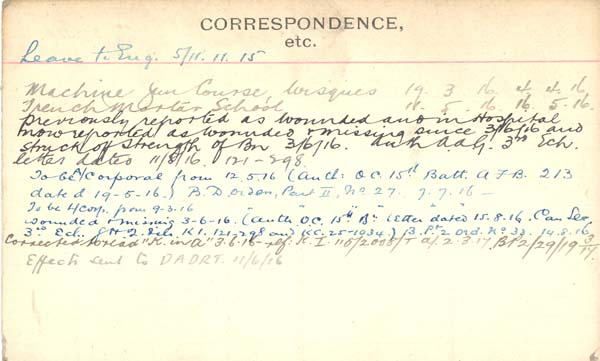 CORRESPONDENCE,
etc.
Leave to Eng. 5/11. 11. 15
Machine Gun Course, Wisques 19. 3. 16. 4. 4. 16
Trench Mortar School 11. 5. 16. 16. 5. 16
Previously reported as wounded and in Hospital
now reported as wounded & missing since 3/6/16 and
struck off strength of Bn 3/6/16. Auth A.A.G. 3rd Ech.
letter dated 11/8/16. 121-298.
To be A/Corporal from 12.5.16 (Auth: O.C. 15th Batt. A.F.B. 213
dated 19-5-16.) B.D. Orders, Part II, No 27. 7.7.16 -
To be L/Corp. from 9-3-16 " " " "
wounded & missing 3-6-16. (Auth O.C. 15th Bn letter dated 15.8.16. Can Sec,
3rd Ech. G.H.Q. file K1. 121-298 and KC.25-1934.) B.Pt 2 Ord. No 33. 14.8.16
Corrected to read "K. in A." 3.6.16 - ref: K.I. 115/2008/T a/ 2.3.17, BP2/29/19 3/17.
Effects sent to D.A.D.R.T. 11/6/16